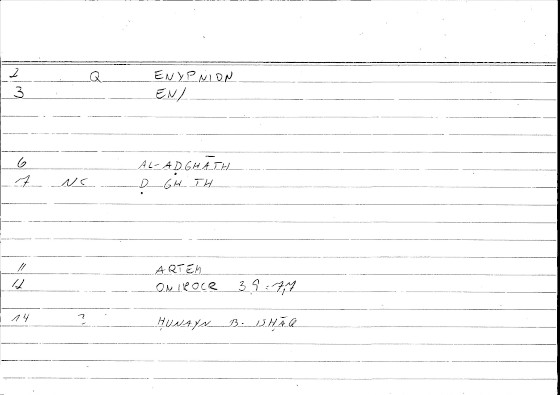 2 Q ENYPNION
3 EN/
6 AL-AḌGHĀTH
7 NC Ḍ GH TH
11 ARTEM
12 ONIROCR 3,9:7,7
14 ? ḤUNAYN B. ISḤĀQ